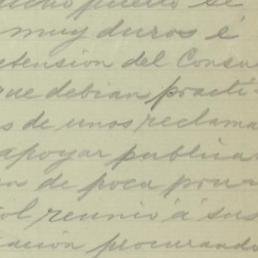 dicho puerto se
muy duros é
etension del Consu
que debian practi-
s de unos reclama
apoyar publica
n de poca pru
ol reunió á sus
tación procurando